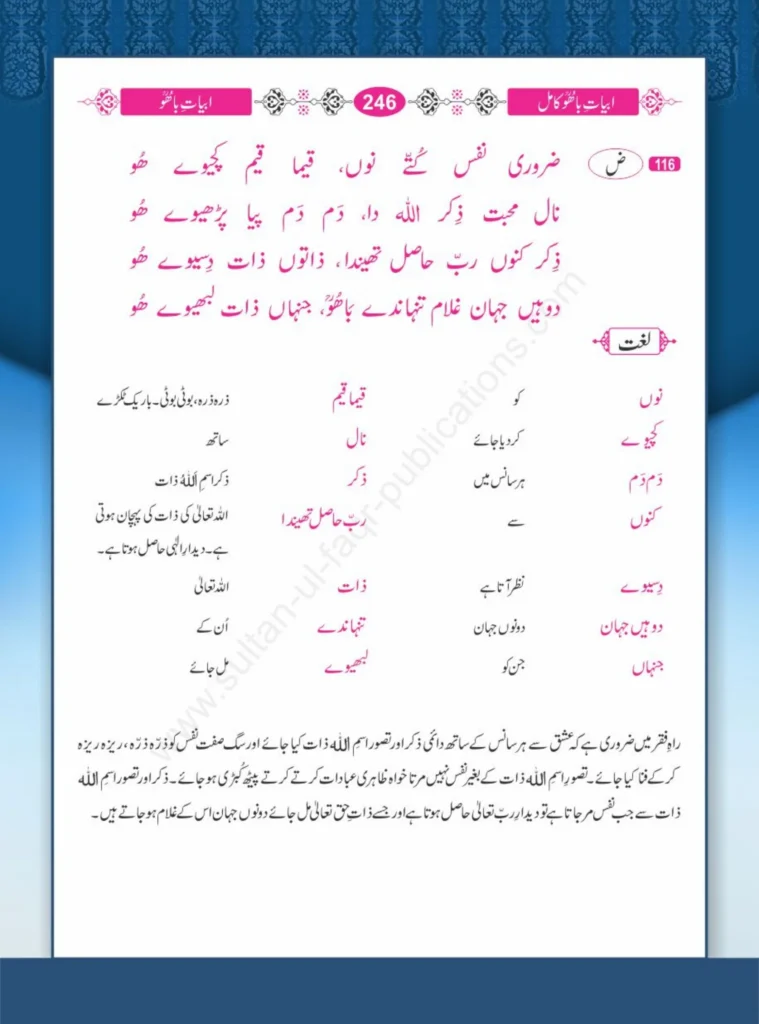 ابیاتِ باھُوؒ کامل 246 ابیاتِ باھُوؒ
116 ض ضروری نفس کُتّے نوں، قیما قیم کچیوے ھُو
نال محبت ذِکر اللہ دا، دَم دَم پیا پڑھیوے ھُو
ذِکر کنوں ربّ حاصل تھیندا، ذاتوں ذات دِسیوے ھُو
دوہیں جہان غلام تنہاندے باھُوؒ، جنہاں ذات لبھیوے ھُو
لغت
نوں کو قیما قیم ذرہ ذرہ، بوٹی بوٹی۔ باریک ٹکڑے
کچیوے کر دیا جائے نال ساتھ
دَم دَم ہر سانس میں ذکر ذکر اسمِ اَللہُ ذات
کنوں سے ربّ حاصل تھیندا اللہ تعالیٰ کی ذات کی پہچان ہوتی
ہے۔ دیدارِ الٰہی حاصل ہوتا ہے۔
دِسیوے نظر آتا ہے ذات اللہ تعالیٰ
دوہیں جہان دونوں جہان تنہاندے اُن کے
جنہاں جن کو لبھیوے مل جائے
راہِ فقر میں ضروری ہے کہ عشق سے ہر سانس کے ساتھ دائمی ذکر اور تصور اسمِ اللہ ذات کیا جائے اور سگ صفت نفس کو ذرّہ ذرّہ، ریزہ ریزہ
کر کے فنا کیا جائے۔ تصورِ اسمِ اللہ ذات کے بغیر نفس نہیں مرتا خواہ ظاہری عبادات کرتے کرتے پیٹھ کُبڑی ہو جائے۔ ذکر اور تصور اسمِ اللہ
ذات سے جب نفس مر جاتا ہے تو دیدارِ ربّ تعالیٰ حاصل ہوتا ہے اور جسے ذاتِ حق تعالیٰ مل جائے دونوں جہان اس کے غلام ہو جاتے ہیں۔
www.sultan-ul-faqr-publications.com